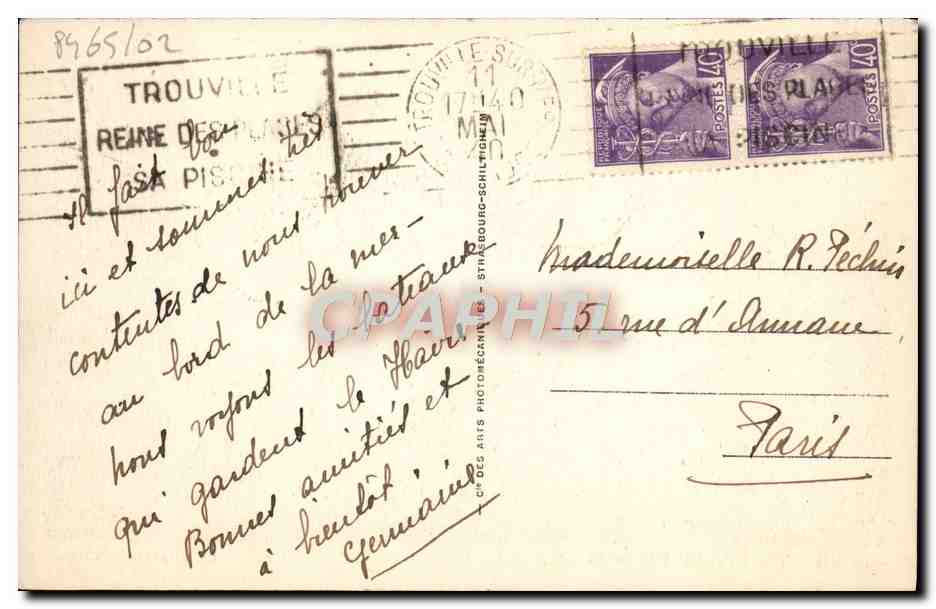 8465/02
TROUVILLE
REINE DES PLAGES
SA PISCINE
TROUVILLE SUR MER
11
17H40
MAI
40
POSTES 40
POSTES 40
TROUVILLE
REINE DES PLAGES
SA PISCINE
Il fait bon
ici et sommes très
contentes de nous trouver
au bord de la mer -
nous voyons les bateaux
qui gardent le Havre
Bonnes amitiés et
à bientôt.
Germaine
Cie DES ARTS PHOTOMÉCANIQUES - STRASBOURG-SCHILTIGHEIM
Mademoiselle R. Péchin
5 rue d'Annam
Paris
CPAPHIL